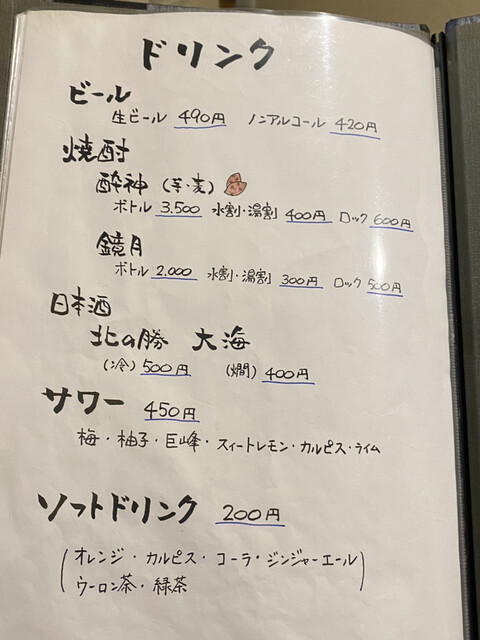 ドリンク
ビール
生ビール 490円 ノンアルコール 420円
焼酎
酔神 (芋・麦)
ボトル 3.500 水割・湯割 400円 ロック 600円
鏡月
ボトル 2.000 水割・湯割 300円 ロック 500円
日本酒
北の勝 大海
(冷) 500円 (燗) 400円
サワー 450円
梅・柚子・巨峰・スィートレモン・カルピス・ライム
ソフトドリンク 200円
(オレンジ・カルピス・コーラ・ジンジャーエール
ウーロン茶・緑茶)